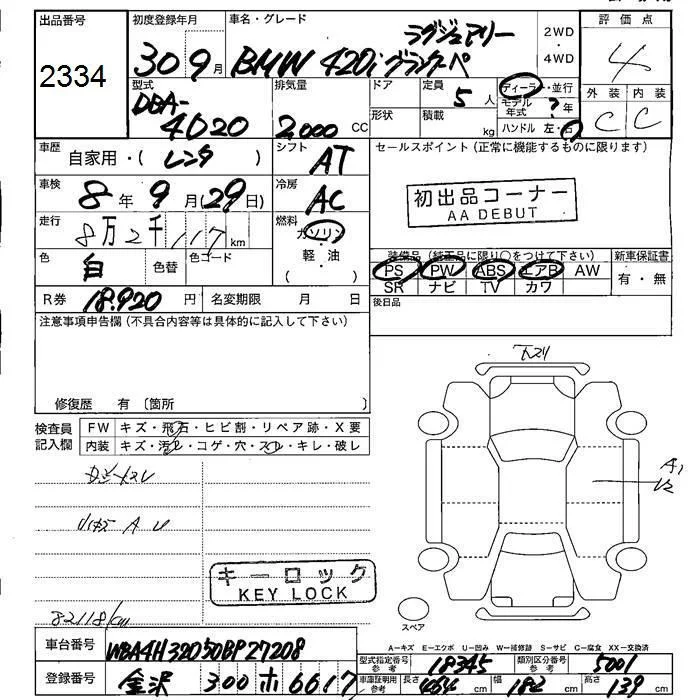 出品番号
2334
初度登録年月
30 9月
車名・グレード
BMW 420i グランクーペ ラグジュアリー
2WD
・
4WD
評価点
4
外装 内装
C C
型式
DBA-
4D20
排気量
2000 CC
ドア
形状
定員
5人
積載
kg
ディーラー・並行
モデル年式 ? 年
ハンドル 左・右
車歴
自家用・( レンタ )
シフト
AT
セールスポイント(正常に機能するものに限ります)
初出品コーナー
AA DEBUT
車検
8年 9月(29日)
冷房
AC
走行
8万2千117km
燃料
ガソリン
軽・油
( )
色
白
色替
色コード
装備品(純正品に限り○をつけて下さい)
PS PW ABS エアB AW
SR ナビ TV カワ
新車保証書
有・無
R券 18.920円
名変期限 月 日
後日品
注意事項申告欄(不具合内容等は具体的に記入して下さい)
修復歴 有〔箇所 〕
検査員
記入欄
FW キズ・飛石・ヒビ割・リペア跡・X要
内装 キズ・汚レ・コゲ・穴・スレ・キレ・破レ
下スリ
キーロック
KEY LOCK
82118km
スペア
A-キズ E-エクボ U-凹み W-補修跡 S-サビ C-腐食 XX-交換済
車台番号 WBA4H32050BP27208
型式指定番号 参考 18345
類別区分番号 参考 5001
登録番号 金沢 300 ホ 6617
車庫証明用 参考 長さ 464cm 幅 182cm 高さ 139cm